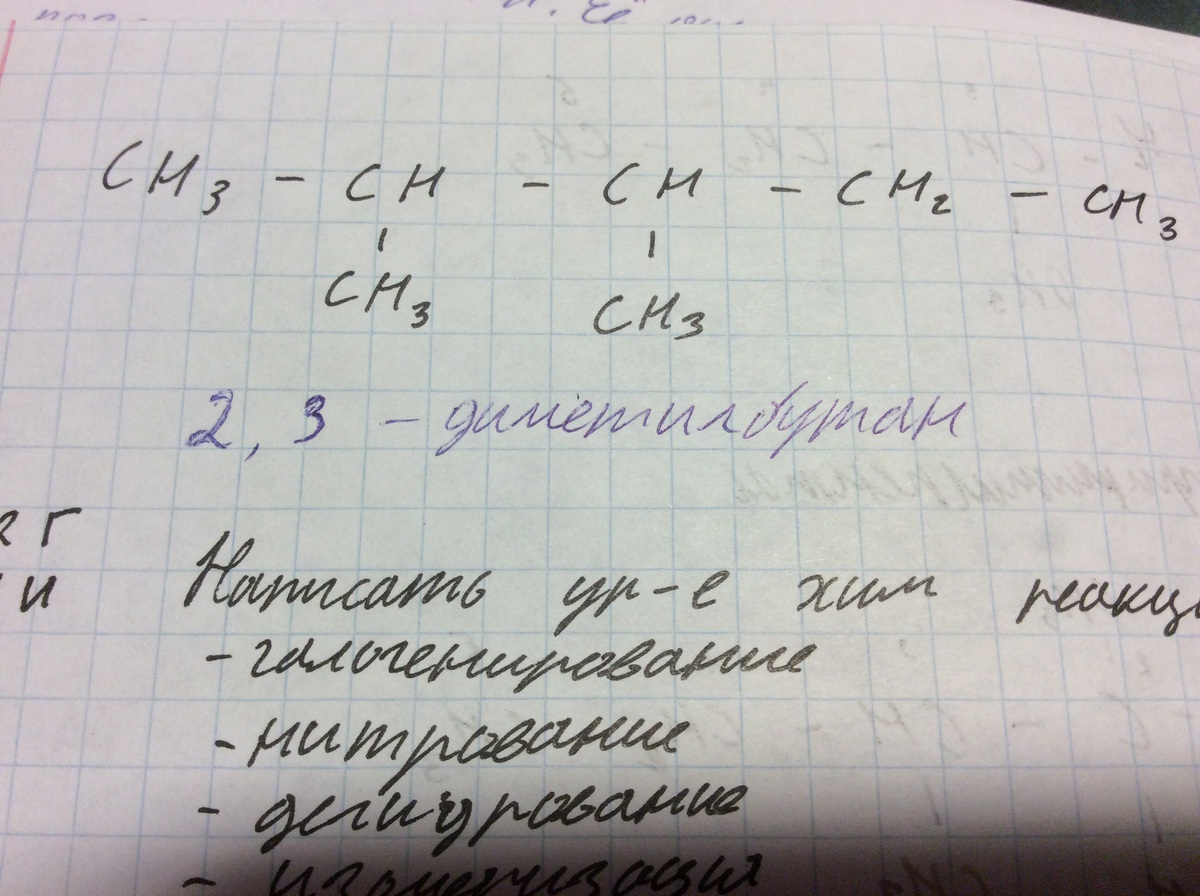 CH3 - CH - CH - CH2 - CH3
CH3 CH3
2, 3 - диметилбутан
Г
и
Написать ур-е хим реакц
- галогенирование
- нитрование
- дегидрование
- изомеризация